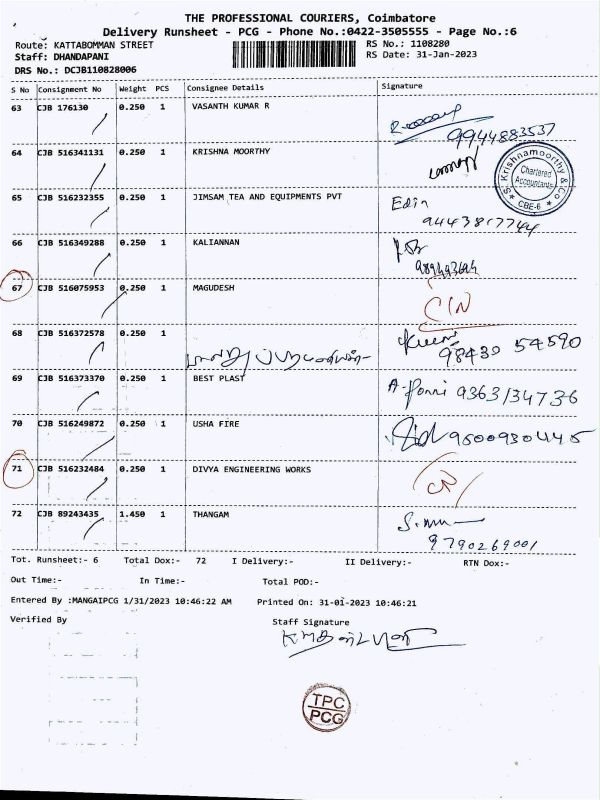 THE PROFESSIONAL COURIERS, Coimbatore
Delivery Runsheet - PCG - Phone No.:0422-3505555 - Page No.:6
Route: KATTABOMMAN STREET RS No.: 1108280
Staff: DHANDAPANI RS Date: 31-Jan-2023
DRS No.: DCJB110828006
S No Consignment No Weight PCS Consignee Details Signature
63 CJB 176130 0.250 1 VASANTH KUMAR R
9944883537
64 CJB 516341131 0.250 1 KRISHNA MOORTHY
S. Krishnamoorthy & Co
Chartered
Accountants
CBE-6
65 CJB 516232355 0.250 1 JIMSAM TEA AND EQUIPMENTS PVT Edin
9443817744
66 CJB 516349288 0.250 1 KALIANNAN
67 CJB 516075953 0.250 1 MAGUDESH
68 CJB 516372578 0.250 1
98430 54590
69 CJB 516373370 0.250 1 BEST PLAST A. Ponni 9363134736
70 CJB 516249872 0.250 1 USHA FIRE 9500930445
71 CJB 516232484 0.250 1 DIVYA ENGINEERING WORKS
72 CJB 89243435 1.450 1 THANGAM
9790269001
Tot. Runsheet:- 6 Total Dox:- 72 I Delivery:- II Delivery:- RTN Dox:-
Out Time:- In Time:- Total POD:-
Entered By :MANGAIPCG 1/31/2023 10:46:22 AM Printed On: 31-01-2023 10:46:21
Verified By Staff Signature
TPC
PCG